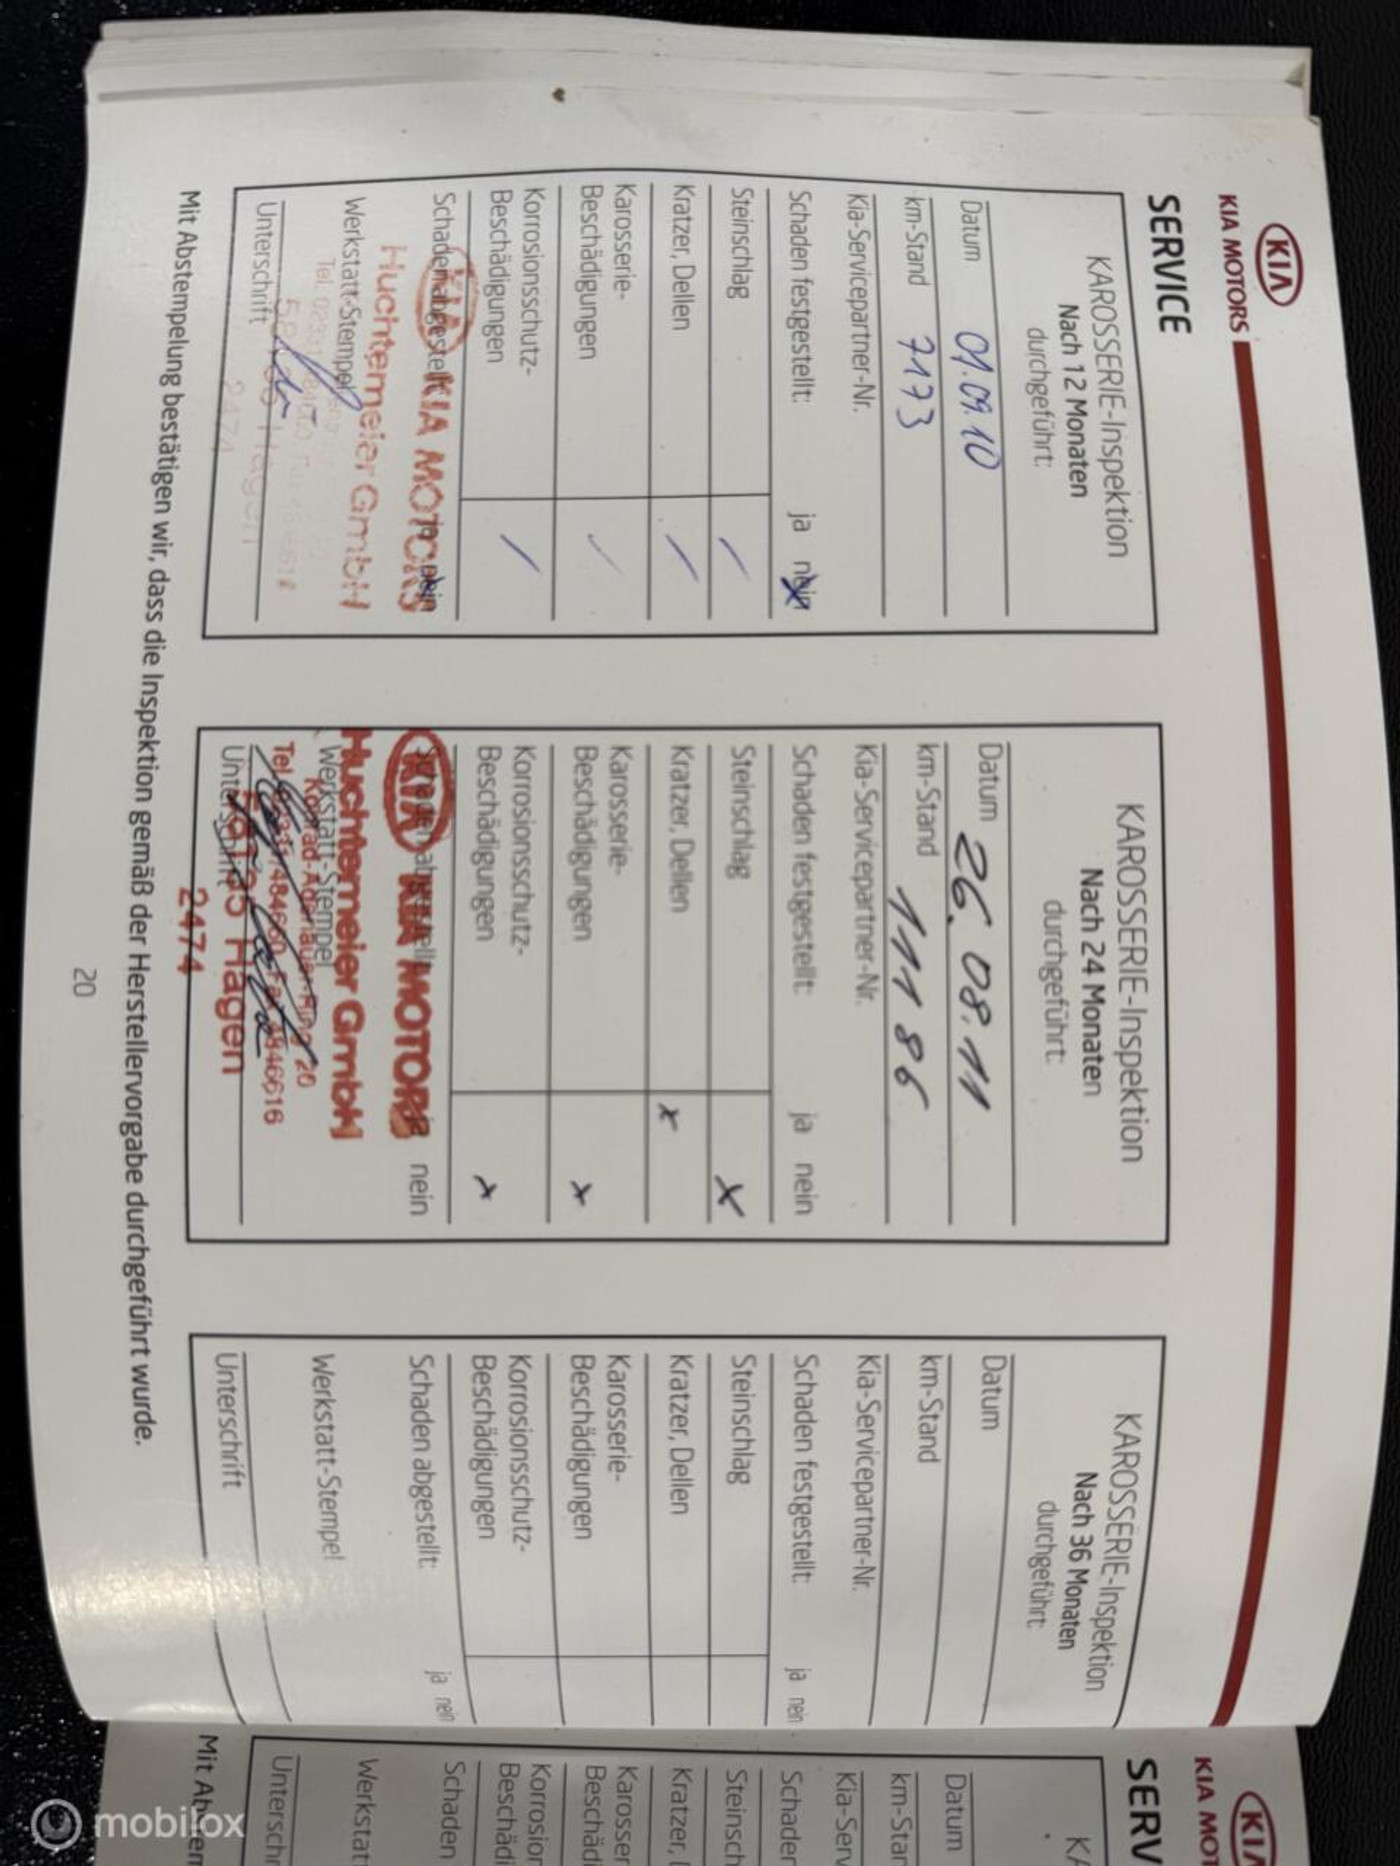 KIA
KIA MOTORS
SERVICE
KAROSSERIE-Inspektion
Nach 12 Monaten
durchgeführt:
Datum 01.09.10
km-Stand 7173
Kia-Servicepartner-Nr.
Schaden festgestellt: ja nein
Steinschlag
Kratzer, Dellen
Karosserie-
Beschädigungen
Korrosionsschutz-
Beschädigungen
Schaden abgestellt: ja nein
KIA KIA MOTORS
Huchtemeier GmbH
Werkstatt-Stempel
Hagen
Unterschrift
2474
KAROSSERIE-Inspektion
Nach 24 Monaten
durchgeführt:
Datum 26.08.11
km-Stand 11186
Kia-Servicepartner-Nr.
Schaden festgestellt: ja nein
Steinschlag x
Kratzer, Dellen x
Karosserie-
Beschädigungen x
Korrosionsschutz-
Beschädigungen x
Schaden abgestellt: ja nein
KIA KIA MOTORS
Huchtemeier GmbH
Werkstatt-Stempel
Konrad-Adenauer-Ring 20
Hagen
Unterschrift
2474
KAROSSERIE-Inspektion
Nach 36 Monaten
durchgeführt:
Datum
km-Stand
Kia-Servicepartner-Nr.
Schaden festgestellt: ja nein
Steinschlag
Kratzer, Dellen
Karosserie-
Beschädigungen
Korrosionsschutz-
Beschädigungen
Schaden abgestellt: ja nein
Werkstatt-Stempel
Unterschrift
Mit Abstempelung bestätigen wir, dass die Inspektion gemäß der Herstellervorgabe durchgeführt wurde.
20
KIA
KIA MOT
SERV
KA
Datum
km-Star
Kia-Serv
Schader
Steinsch
Kratzer,
Karosser
Beschädi
Korrosion
Beschädi
Schaden
Werkstat
Unterschr
Mit Abstem
mobilox